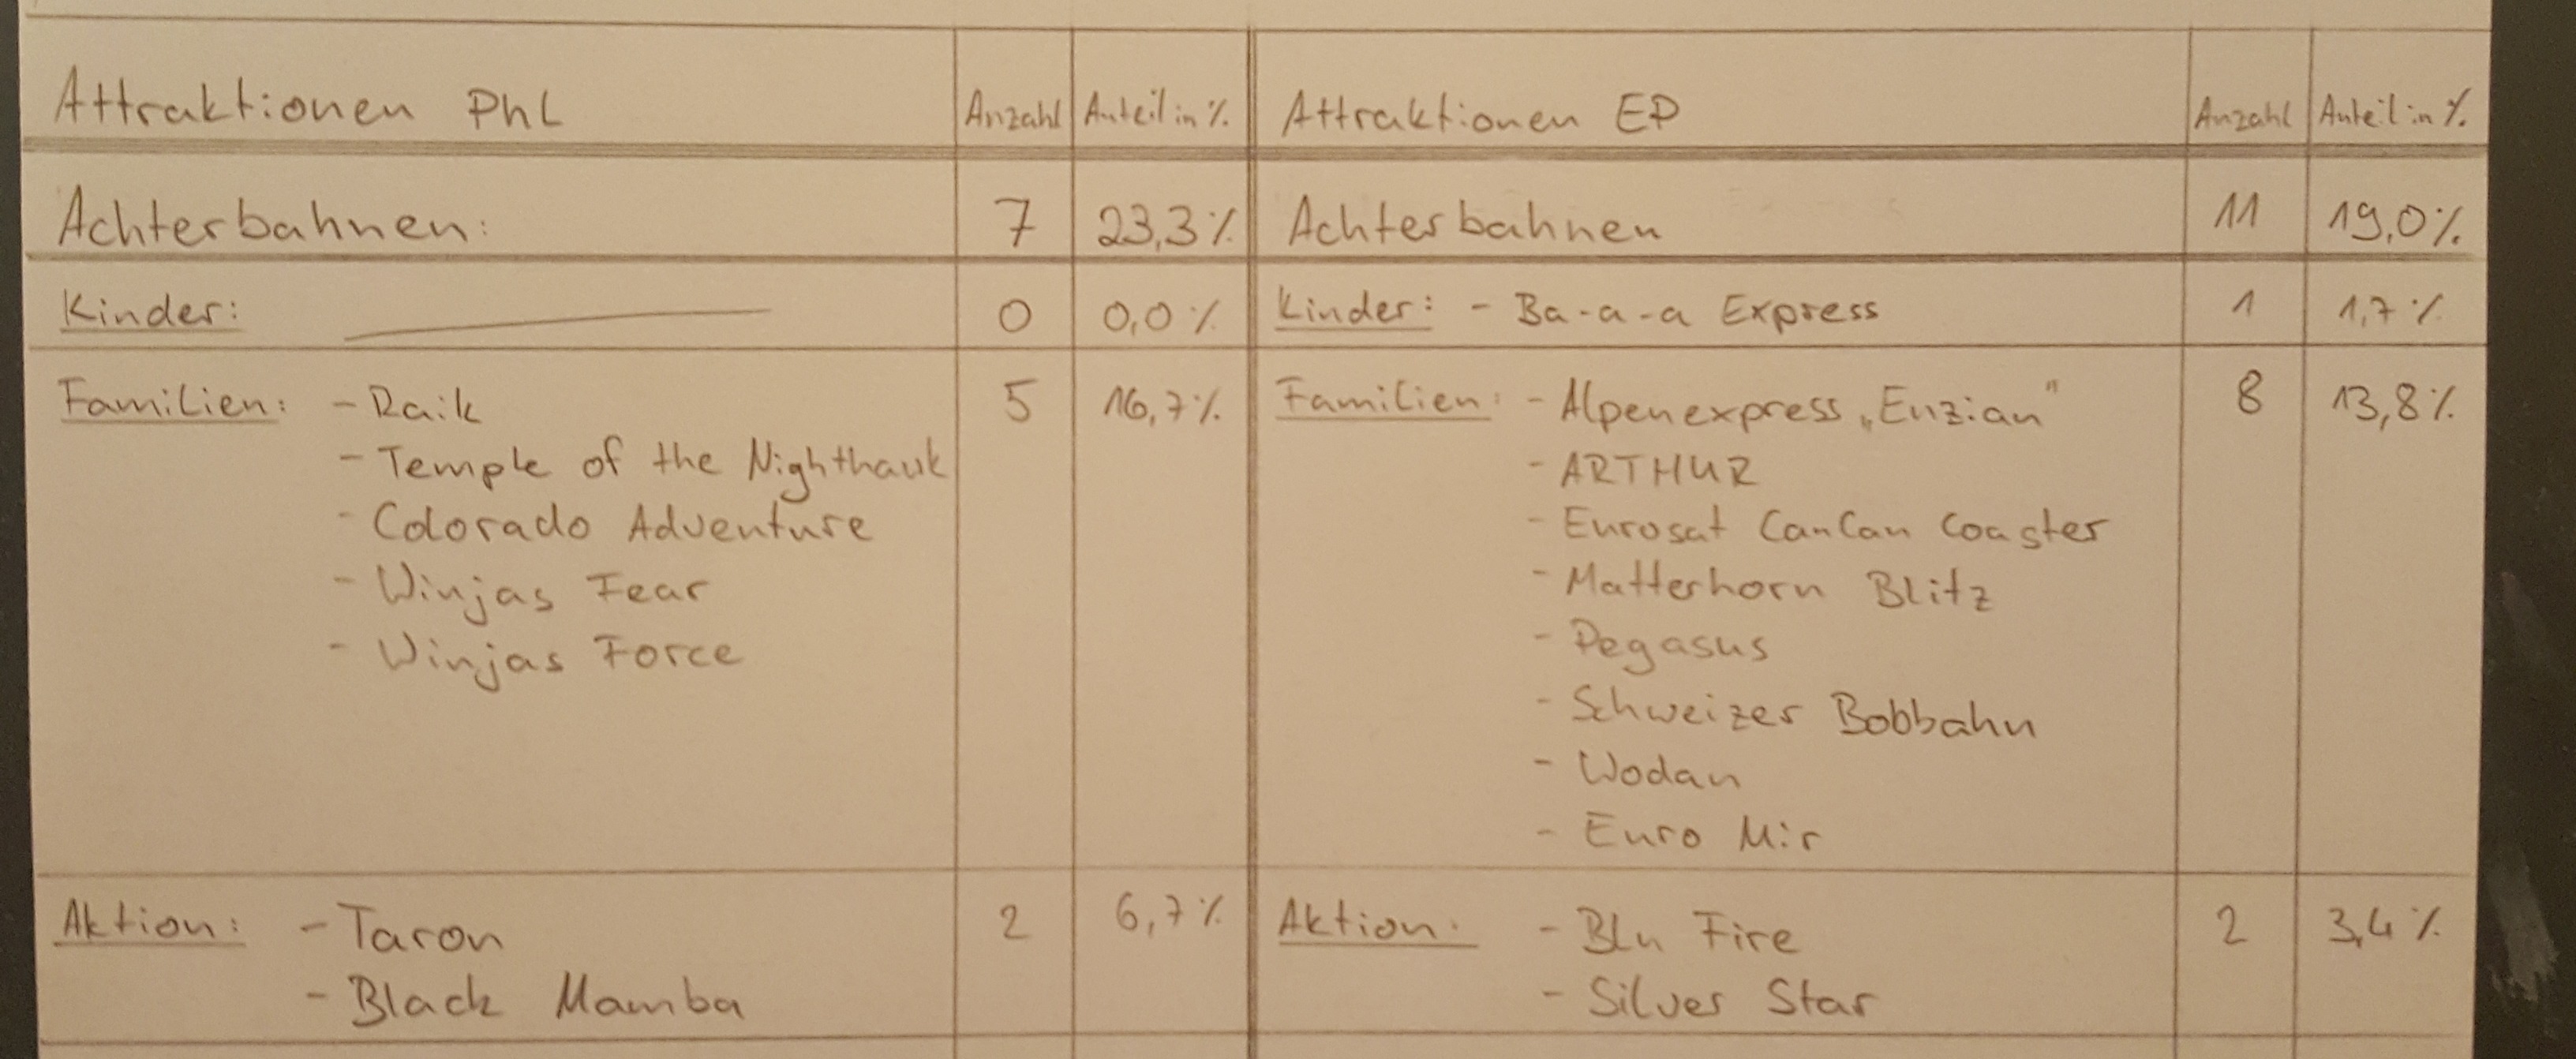 Attraktionen PhL Anzahl Anteil in % Attraktionen EP Anzahl Anteil in %
Achterbahnen: 7 23,3% Achterbahnen 11 19,0%
Kinder: 0 0,0% Kinder: - Ba-a-a Express 1 1,7%
Familien: - Raik 5 16,7% Familien: - Alpenexpress „Enzian" 8 13,8%
- Temple of the Nighthawk - ARTHUR
- Colorado Adventure - Eurosat CanCan Coaster
- Winjas Fear - Matterhorn Blitz
- Winjas Force - Pegasus
- Schweizer Bobbahn
- Wodan
- Euro Mir
Aktion: - Taron 2 6,7% Aktion: - Blu Fire 2 3,4%
- Black Mamba - Silver Star